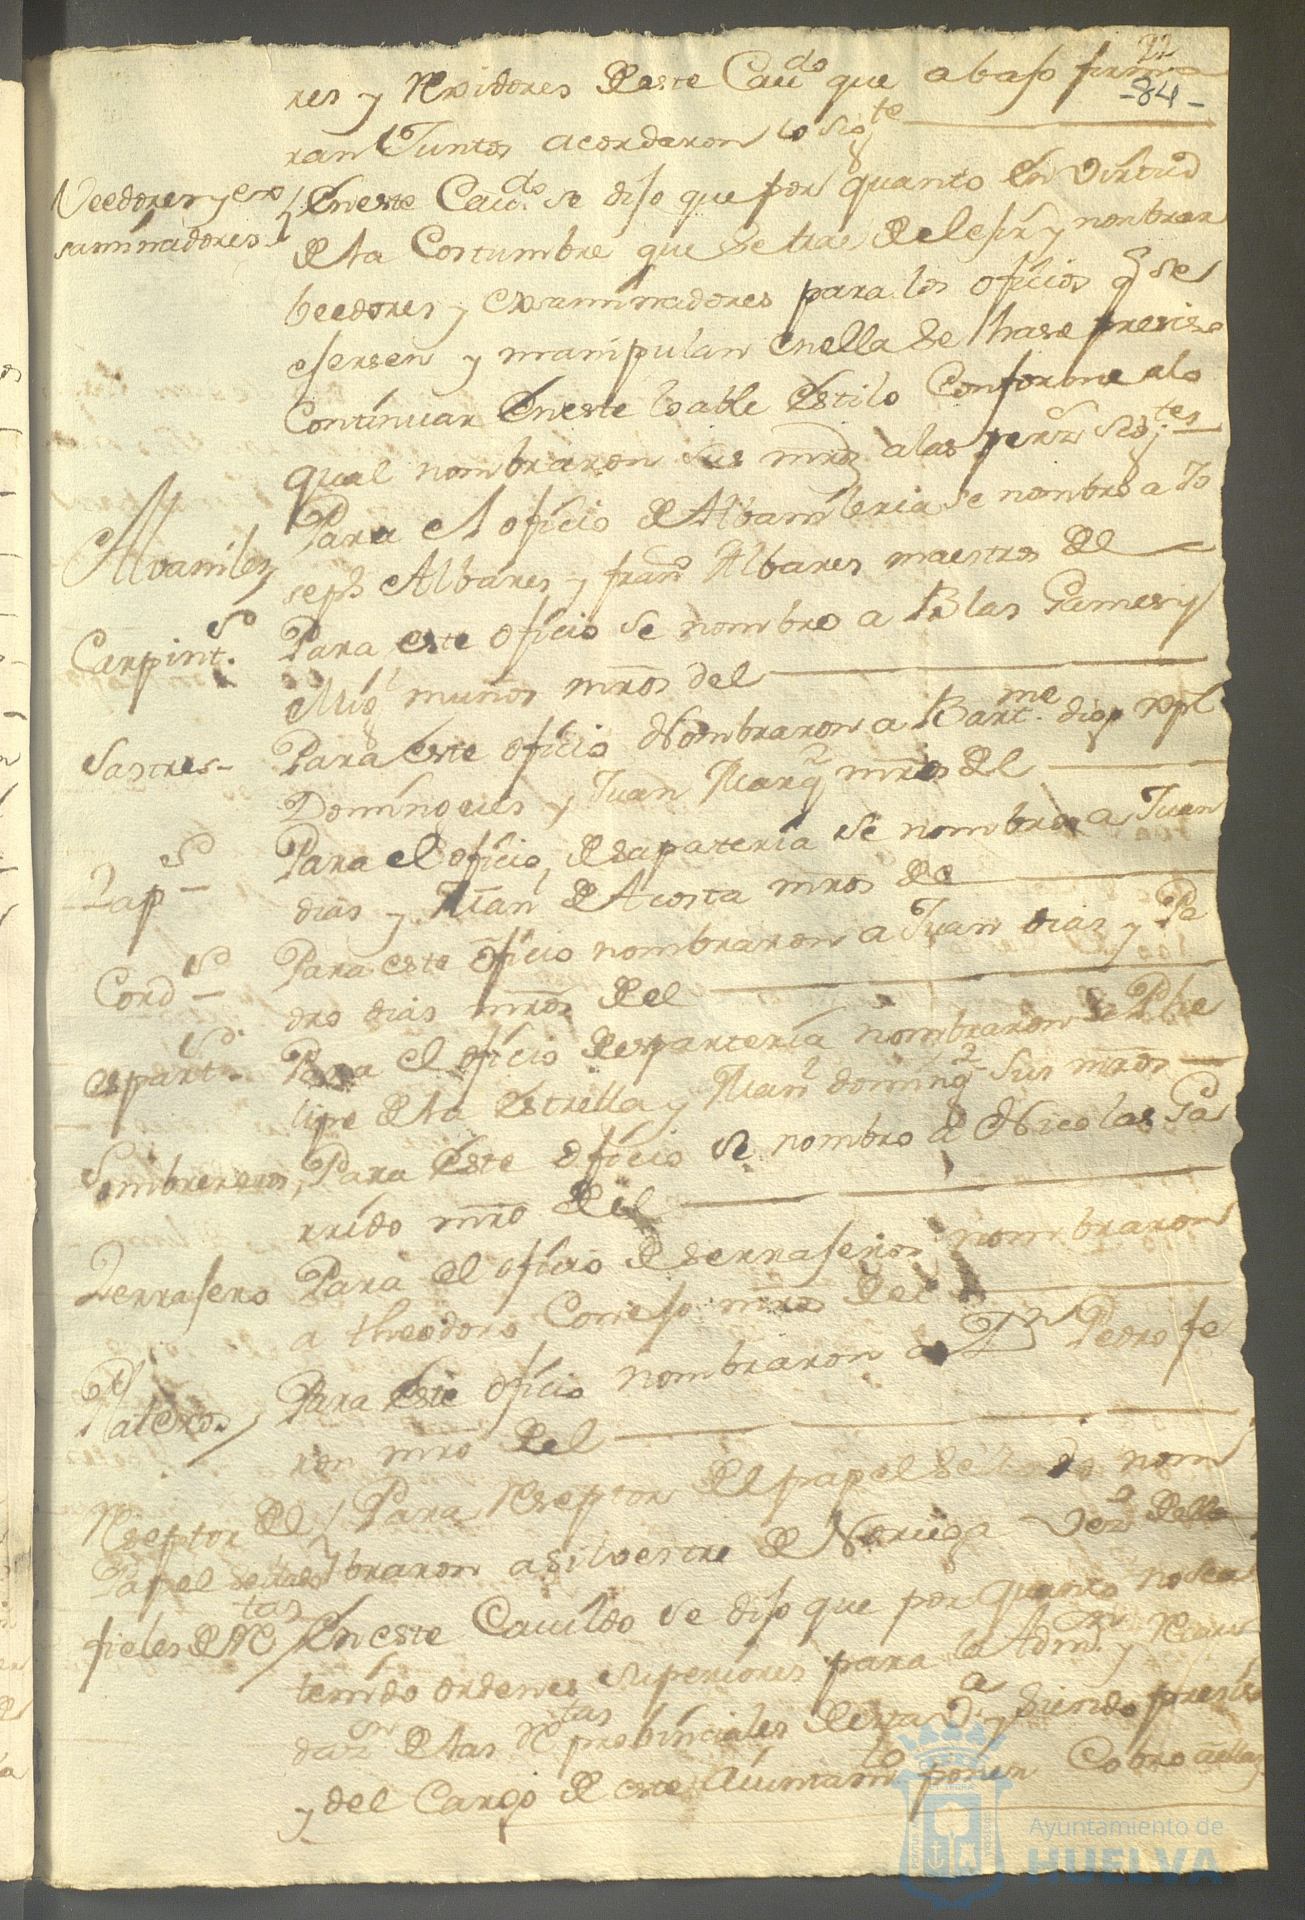 22
-84-
res y Rexidores deeste Cauᵈᵒ que abajo firma
ran Juntos acordaron lo sigᵗᵉ
Veedores y exa
saminadores
En este Cauᵈᵒ se dijo que por quanto En Virtud
de la Costumbre que se trae de lejir y nombrar
beedores y examinadores para los oficios q̃ se
ejersen y manipulan en ella se hase presiso
Continuar En este loable Estilo Conforme a lo
qual nombraron sus mrds a las persˢ sigᵗᵉˢ
Alvaniles
Para el oficio de Albanileria se nombro a Jo
seph Albares y franᶜᵒ Albares maestros de el
Carpintˢ
Para este oficio se nombro a Blas Gamesy
Migˡ muños mr̃os del
Sastres
Para Este oficio Nombraron a Bartᵐᵉ
Domingues y Juan Marqᶻ mr̃os del
Zapˢ
Para el oficio de sapateria se nombro a Juan
dias y Manˡ de Acosta mr̃os de
Cordˢ
Para este oficio nombraron a Juan dias y Pe
dro dias mr̃os de el
espartˢ
Para el oficio de esparteria nombraron a Phe
lipe de la Estrella y Manˡ domingᶻ sus mr̃os
Sombrereros
Para Este oficio se nombro a Nicolas Ga
rrido mr̃o de el
Zerrajero
Para el oficio de serrajeros nombraron
a theodoro Cornejo mr̃o del
Platero
Para Este oficio nombraron a Dⁿ Pedro fe
ron mr̃o de el
Reseptor del
Papel sellado
Para Reseptor del papel sellado nom
braron a Silvestre de Noriega Vezᵒ della
fieles de Rᵗᵃˢ
En este Cauildo se dijo que por quanto no sea
tenido ordenes superiores para la Admᵒⁿ y Recau
dazᵒⁿ de las Rᵗᵃˢ probinciales de esta Vᵃ y siendo presiso
y del Cargo de este Aiuntamᵗᵒ poner Cobro a ellas
Ayuntamiento de
HUELVA